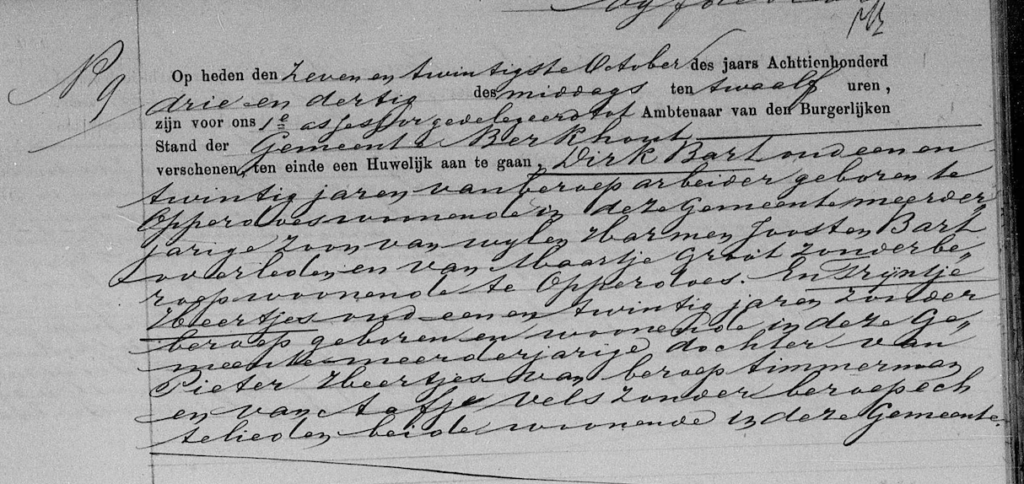 No 9
Op heden den zeven en twintigste October des jaars Achttienhonderd
drie en dertig des middags ten twaalf uren,
zijn voor ons 1e assessor gedelegeerd tot Ambtenaar van den Burgerlijken
Stand der Gemeente Berkhout
verschenen, ten einde een Huwelijk aan te gaan, Dirk Bart oud een en
twintig jaren van beroep arbeider geboren te
Opperdoes woonende in deze Gemeente meerder„
jarige zoon van wylen Harmen Joosten Bart
overleden en van Maartje Groot zonder be„
roep woonende te Opperdoes. En Trijntje
Heertjes oud een en twintig jaren zonder
beroep geboren en woonende in deze Ge„
meente meerderjarige dochter van
Pieter Heertjes van beroep timmerman
en van Aafje Vels zonder beroep ech
telieden beide woonende in deze Gemeente.